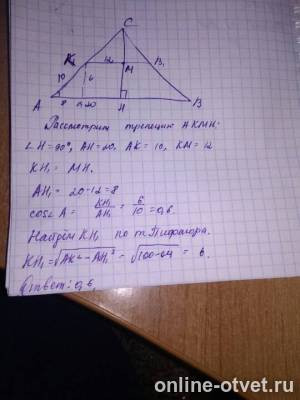 C
K 12 M B₁
10 6
A 8 H₁ 20 H B
Рассмотрим трапецию AKMH.
∠H = 90°, AH = 20, AK = 10, KM = 12
KH₁ = MH.
AH₁ = 20 - 12 = 8
cos∠A = KH₁/AH₁ = 6/10 = 0,6.
Найдём KH₁ по т. Пифагора.
KH₁ = √AK² - AH₁² = √100-64 = 6.
Ответ: 0,6.
online-otvet.ru